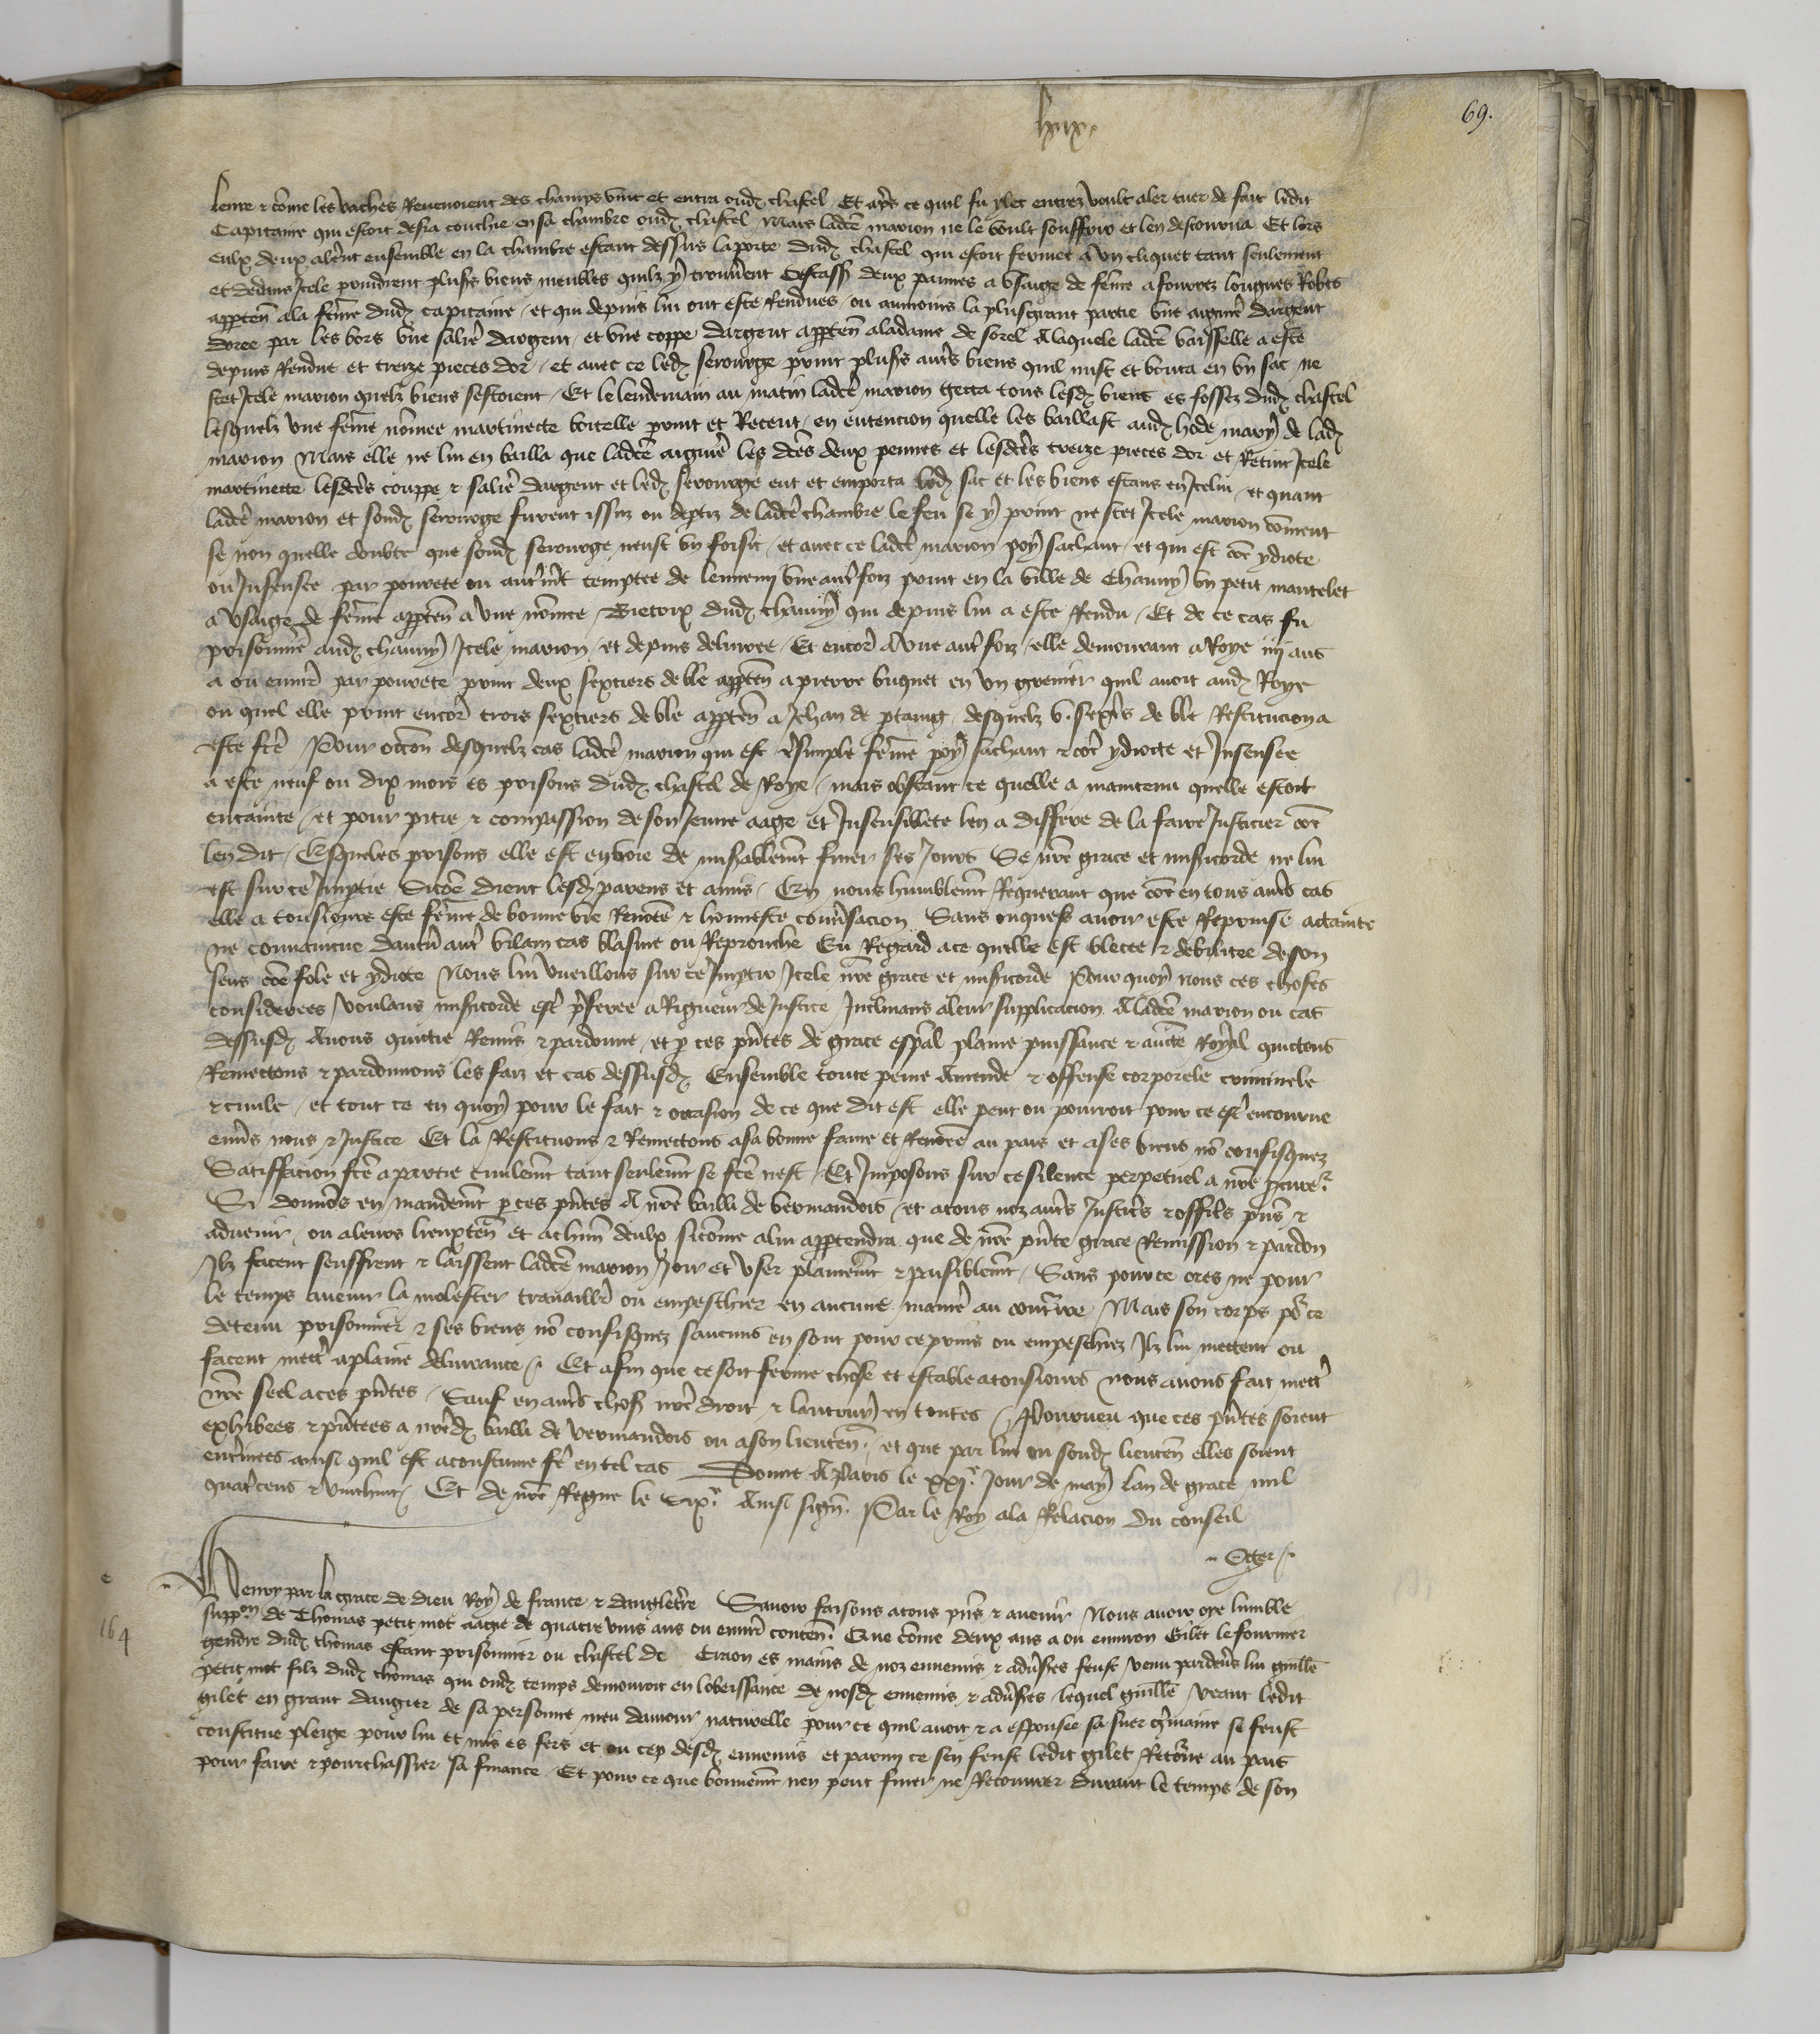 lxix.
69.
leure & cōme les vaches Revenoient des champs vint et entra oud chastel Et apꝛs ce quil fu ylec entrez voult aler tuer de fait ledit
Capitaine qui estoit desia couchie en sa chambre oud chastel Mais ladcē marion ne le voult souffrir et len destourna Et lors
eulx deux alerēt ensemble en la chambre estant dessus la porte dud chastel qui estoit fermee a un cliquet tant seulement
et dedans Icele prindrent plusꝰs biens meubles quilz y trouverent Cestass deux pannes a usaige de fēme a fourrez longues Robes
apptēn ala fēme dud capitaine / et qui depuis lui ont este Rendues / ou aumoins la plusgrant partie une aiguiere dargent
doree par les bors une saliere dargent / et une coppe dargent apptēn a la dame de sorel A laquele ladcē vaisselle a este
depuis Rendue et treize pieces dor / et avec ce led serourge print plusꝰs autrēs biens quil mist et bouta en un sac ne
scet Icele marion quelz biens sestoient / Et le lendemain au matin ladcē marion getta tous lesd biens es fossez dud chastel
lesquelz une fēme nōmee martinecte boitelle print et Recent / en entencion quelle les baillast aud hode mary de lad
marion Mais elle ne lui en bailla que ladcē aiguiē les dcēs deux pennes et lesdcēs treize pieces dor et Retint Icele
martinecte lesdcēs couppe & saliē dargent et led serourge eut et emporta led sac et les biens estans en Icelui / et quant
ladcē marion et sond serourge furent issuz ou deptiz de ladcē chambre le feu se y print ne scet Icele marion cōment
se non quelle doubte que sond serourge neust un foisil / et avec ce ladcē marion poy sachant / et qui est cōe ydiote
ou Insensee par povrete ou autrēmt temptee de lennemi une autrē foiz print en la ville de Chauny un petit mantelet
a usaige de fēme apptēn a une nōmee / Bietrix dud chauny qui depuis lui a este Rendu / Et de ce cas fu
prisonniē aud chauny Icele marion / et depuis delivree / Et encore A une autrē foiz / elle demourant a Roye iiij ans
a ou envirō par povrete print deux sextiers de ble apptēn a pierre buquet en un grenier quil avoit aud Roye
ou quel elle print encore trois sextiers de ble apptēn a Jehan de , desquelz v. sextꝰs de ble Restitucion a
este fcē Pour occōn desquelz cas ladcē marion qui est simple fēme poy sachant & cōe ydiocte et Insensee
a este neuf ou dix mois es prisons dud chastel de Roye / mais obstant ce quelle a maintenu quelle estoit
encainte / et pour pitie & compassion de son Jeune aage et Insensiblete len a differe de la faire Justicier cōe
len dit / Esqueles prisons elle est en voie de misablemt finer ses Jours Se nrē grace et misicorde ne lui
est sur ce Impartie Sicōe dient lesd parens et amis / En nous humblemt Requerant que cōe en tous autrēs cas
elle a tousiours este fēme de bonne vie Renōēe & honneste convsacion Sans onques avoir este Reprinse actainte
ne convaincue daucū autrē vilain cas blasme ou Reprouche Eu Regard a ce quelle est blecee & debilitee de son
sens cōe fole et ydiote Nous lui vueillons sur ce Imptir Icele nrē grace et misicorde Pour quoy nous ces choses
considerees / voulans misicorde estrē pꝛferee a Rigueur de Justice Inclinans a leur supplicacion A ladcē marion ou cas
dessusd Avons quictie Remis & pardonne / et p ces pn̄tes de grace esp̄al plaine puissance & aucte Royal quictons
Remectons & pardonnons les faiz et cas dessusd Ensemble toute peine Amende & offense corporele criminele
& civile / et tout ce en quoy pour le fait & occasion de ce que dit est elle peut ou pourroit pour ce estrē encourue
envers nous & Justice Et la Restituons & Remectons a sa bonne fame et Renōmēe au pais et a ses biens nō confisquez
Satiffacion fcē a partie civilemt tant seulemt se fcē nest / Et Imposons sur ce silence perpetuel a nrē pcureꝛ
Si donnōs en mandemt p ces pn̄tes A nrē bailli de vermandois / et a tous noz autrēs Justicēs & officēs pn̄s &
advenir / ou a leurs lieuxtēn et a chūn deulx sicōme a lui apptendra que de nrē pn̄te grace Remission & pardon
Ilz facent seuffrent & laissent ladcē marion Joir et user plainemt & paisiblemt / Sans pour ce ores ne pour
le temps avenir la molester travaillēr ou empeschier en aucune manierē au contrēire / Mais son corps poꝛ ce
detenu prisonnier & ses biens nō confisquez saucuns en sont pour ce prins ou empeschiez Ilz lui mettent ou
facent mettrē a plaine delivrance / Et afin que ce soit ferme chose et estable a tousiours nous avons fait mettrē
nrē seel a ces pn̄tes / Sauf en autrēs choses nrē droit & lautruy en toutes / Pourveu que ces pn̄tes soient
exhibees & pn̄tees a nrēd bailli de vermandois ou a son lieutēn / et que par lui ou sond lieutēn elles soient
enterinees ainsi quil est acoustume faire en tel cas Donne A Paris le xxje Jour de may lan de grace mil
quatrēcens & vinthuit / Et de nrē Regne le sixe Ainsi signē. Par le Roy a la Relacion du conseil
Oger
Henry par la grace de dieu Roy de france & dangleterre Savoir faisons a tous pn̄s & avenir Nous avoir oye lumble
164
supp̄on de Thomas petit mot aagie de quatre vins ans ou envirō contēn. Que cōme deux ans a ou environ Gilet le fournier
gendre dud thomas estant prisonnier ou chastel de Craon es mains de noz ennemis & advsꝰes feust venu par devers lui guillē
petit mot filz dud thomas qui oud temps demouroit en lobeissance de nosd ennemis & advsꝰes / lequel guillē veant ledit
gilet en grant dangier de sa personne meu damour naturelle pour ce quil avoit & a espousee sa suer gmaine se feust
constitue pleige pour lui et mis es fers et ou cep desd ennemis et parmi ce sen feust ledit gilet Retōrne au pais
pour faire & pourchassier sa finance / Et pour ce que bonnemt nen peut finer ne Recouvrer durant le temps de son